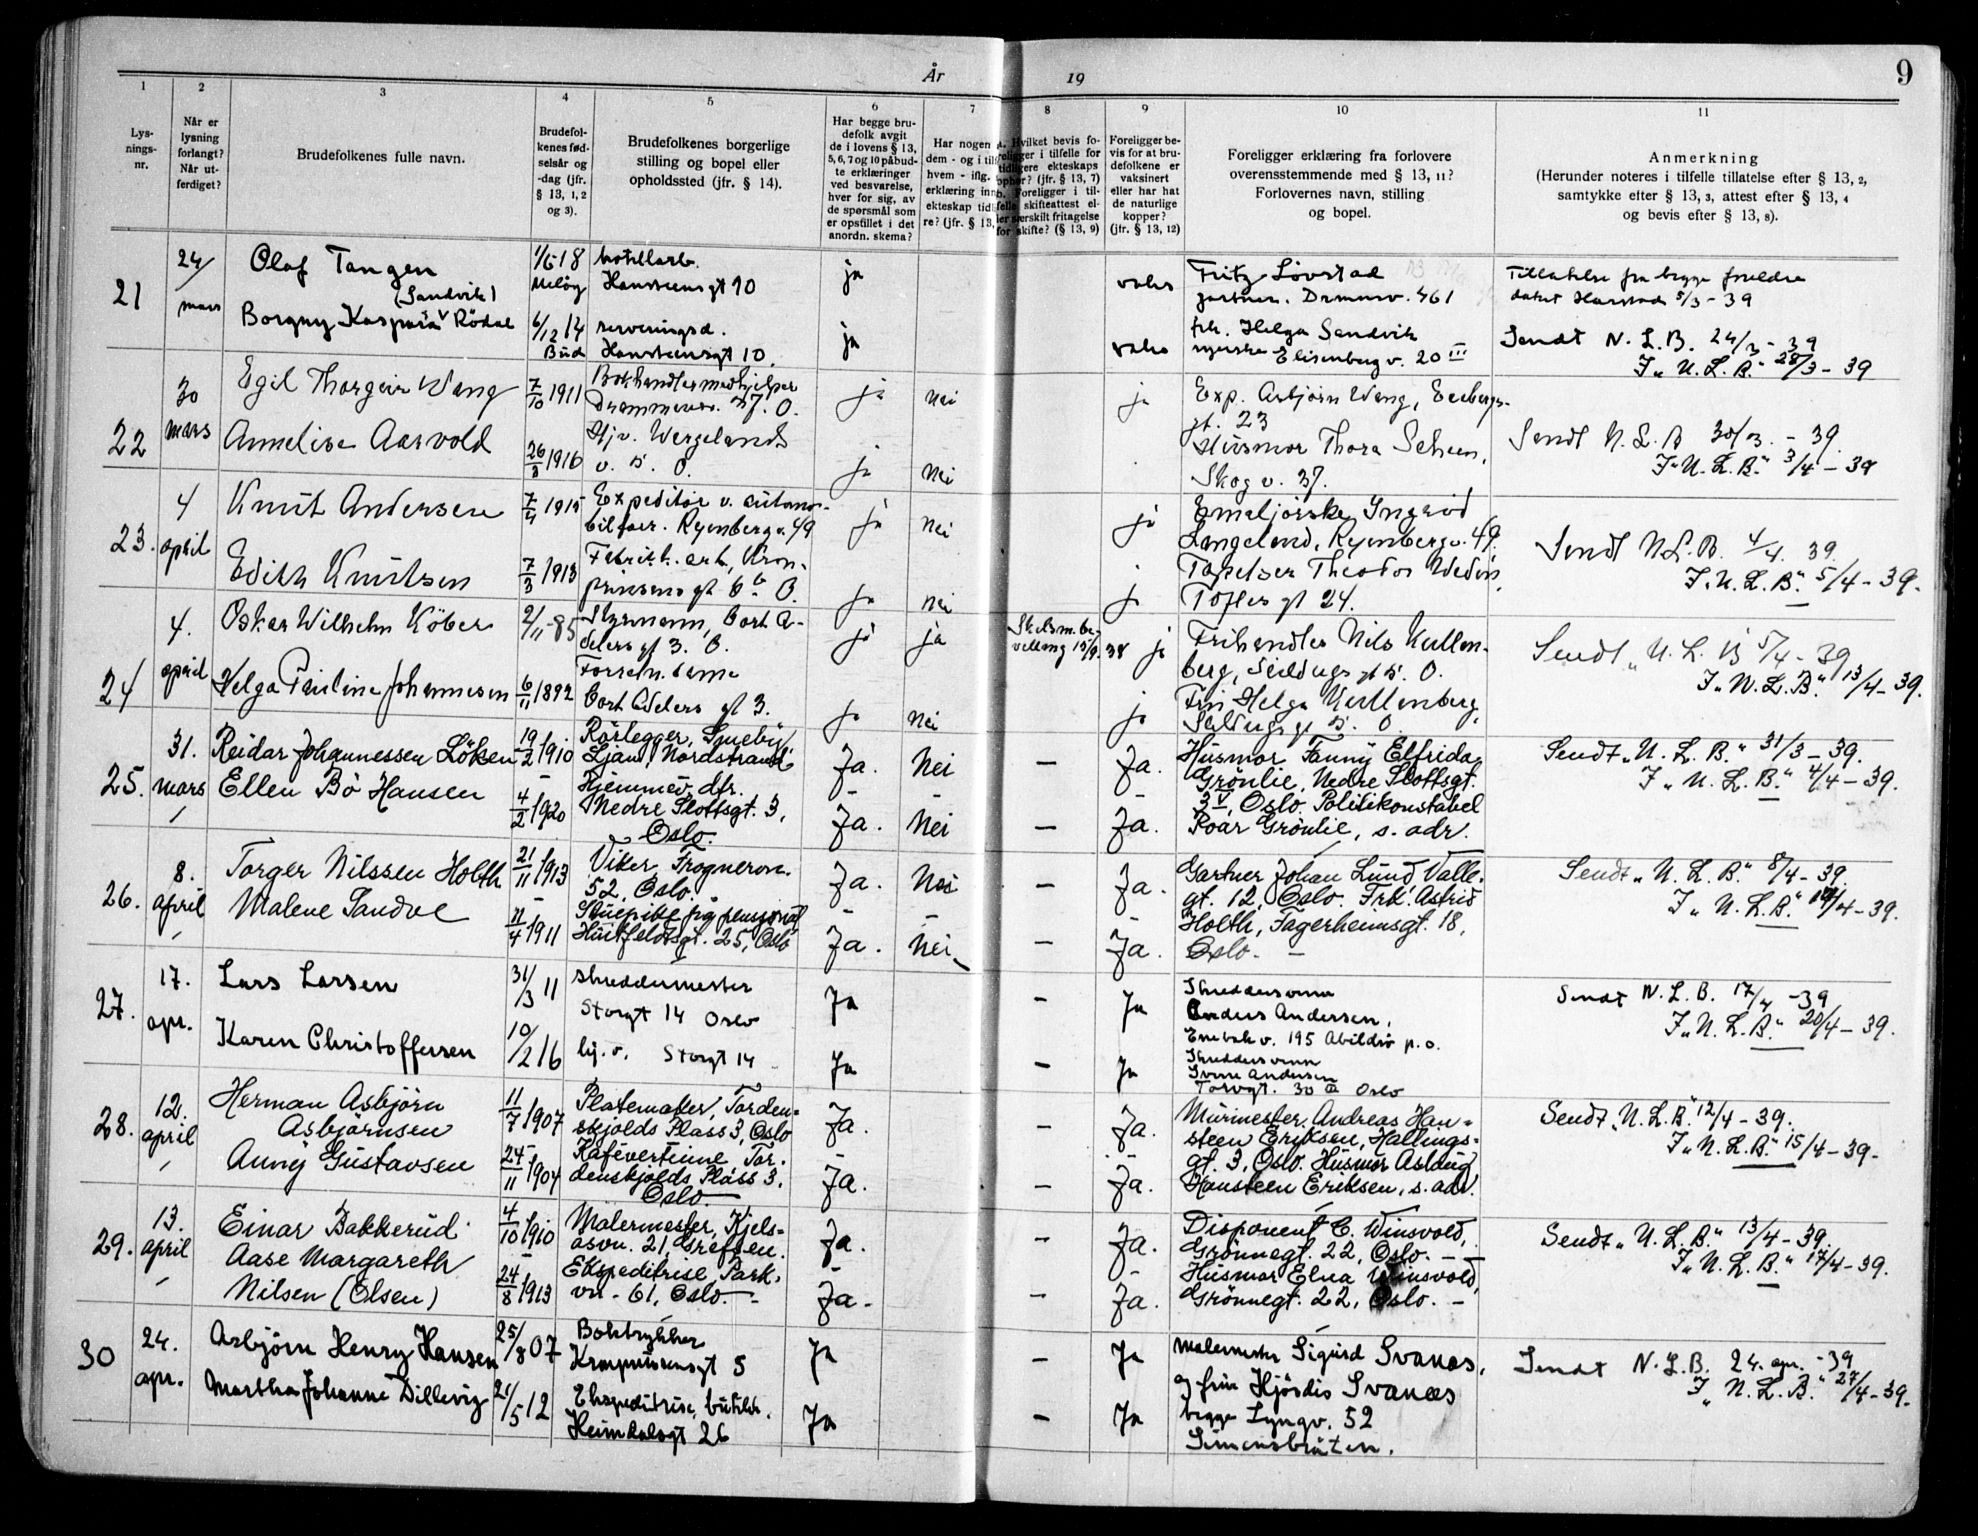 År 19
9
1 2 3 4 5 6 7 8 9 10 11
Lys-
nings-
nr.
Når er
lysning
forlangt?
Når ut-
ferdiget?
Brudefolkenes fulle navn.
Brudefol-
kenes fød-
selsår og
-dag (jfr.
§ 13, 1, 2
og 3).
Brudefolkenes borgerlige
stilling og bopel eller
opholdssted (jfr. § 14).
Har begge bru-
defolk avgit
de i lovens § 13,
5, 6, 7 og 10 påbud-
te erklæringer
ved besvarelse,
hver for sig, av
de spørsmål som
er opstillet i det
anordn. skema?
Har nogen a
dem - og i til
hvem - iflg.
erklæring inn
ekteskap tid
re? (jfr. § 13,
Hvilket bevis fo-
religger i tilfelle for
tidligere ekteskaps
ophør? (jfr. § 13, 7)
b. Foreligger i til-
felle skifteattest el-
ler særskilt fritagelse
for skifte? (§ 13, 9)
Foreligger be-
vis for at bru-
defolkene er
vaksinert
eller har hat
de naturlige
kopper?
(jfr. § 13, 12)
Foreligger erklæring fra forlovere
overensstemmende med § 13, 11?
Forlovernes navn, stilling
og bopel.
Anmerkning
(Herunder noteres i tilfelle tillatelse efter § 13, 2,
samtykke efter § 13, 3, attest efter § 13, 4
og bevis efter § 13, 8).
21
24/
mars
Olaf Tangen
(Sandvik)
Borgny Kaspara Rödal
1/5 18
Meløy
6/12 14
Bud
hotellarb.
Hansteensgt 10
serveringsd.
Hansteensgt 10.
ja
ja
vaks
vaks
Fritz Lövstad
gartner. Drmnsv. 461
frk. Helga Sandvik
Elisenbergv. 20 III
Tillatelse fra begge foreldre
datert Harstad 5/3 - 39
Sendt N. L. B. 24/3 - 39
F„ N. L. B." 28/3 - 39
22
30
mars
Egil Thorgeir Wang
Annelise Aasvold
7/10 1911
26/3 1916
Bokhandlermedhjelper
Drammensv. 37. O.
Hjv. Wergelands
v. 5. O.
ja nei
ja nei
ja
Exp. Asbjörn Wang, Eeebergs-
gt. 23
Husmor Thora Scheen,
Skog v. 37.
Sendt N. L. B 30/3. - 39.
F„ N. L. B." 3/4 - 39
23.
4
april
Knut Andersen
Edith Knutsen
7/4 1915
7/3 1913
Expeditör v. automo-
bilforr. Ryenbergv. 49
Fabrikk. arb, Kron-
prinsens gt 6b O.
ja nei
ja nei
ja
ja
Emaljörske Ingrid
Langeland, Ryenbergv. 49.
Tapetser Theodor Wedin,
Toftes gt 24.
Sendt N.L.B. 4/4. 39.
F„ N. L. B." 5/4 - 39.
24
4.
april
Oskar Wilhelm Köber
Helga Pauline Johannesen
2/11 - 85
6/11 1892
Styrmann, Cort A-
delers gt 3. O.
Forretn. dame
Cort Adelers gt 3.
ja ja
ja nei
Skilsm. be-
villing 15/9. 38
ja
ja
Frihandler Nils Kullen-
berg, Seildugs gt 5. O.
Fru Helga Kullenberg,
Seildugs gt 5. O.
Sendt „N. L. B 5/4 - 39
F„ N. L. B." 13/4 - 39.
25.
31.
mars
Reidar Johannessen Löken
Ellen Bö Hansen
19/2 1910
4/2 1920
Rörlegger, Sneeby,
Ljan, Nordstrand.
Hjemmev. dtr.
Nedre Slottsgt. 3,
Oslo.
Ja. Nei
Ja. Nei
— Ja.
— Ja.
Husmor Fanny Elfrida
Grönlie, Nedre Slottsgt.
3 V, Oslo. Politikonstabel
Roar Grönlie, s. adr.
Sendt „N. L. B." 31/3 - 39.
F „N. L. B." 4/4 - 39.
26.
8.
april
Torger Nilssen Holth
Malene Sandve
21/11 1913
11/4 1911
Viker, Frognervn.
52, Oslo.
Stuepike, pensjonat
Huitfeldtsgt. 25, Oslo
Ja. Nei
Ja. Nei
— Ja.
— Ja.
Gartner Johan Lund, Valle-
gt. 12, Oslo. Frk. Astrid
Holth, Fagerheimsgt. 18,
Oslo. —
Sendt „N. L. B." 8/4 - 39.
F „N. L. B." /4 - 39.
27.
17.
apr.
Lars Larsen
Karen Christoffersen
31/3 11
10/2 16
skreddermester
Storgt 14 Oslo
hj. v. Storgt 14
Ja
Ja
— Ja
— Ja
Skreddersvenn
Anders Andersen,
Enebak v. 195 Abildsö p.o.
Skreddersvenn
Andersen
Torvgt. 30 III Oslo
Sendt N. L. B. 17/4 - 39
F„ N. L. B." 20/4 - 39.
28.
12.
april
Herman Asbjörn
Asbjörnsen
Anny Gustavsen
11/7 1907
24/11 1904
Platemaker, Torden-
skjolds Plass 3, Oslo
Kafévertinne Tor-
denskjolds Plass 3,
Oslo
Ja.
Ja.
— Ja.
— Ja.
Murmester Andreas Han-
steen Eriksen, Hallings-
gt. 3, Oslo. Husmor Aslaug
Hansteen Eriksen, s. adr.
Sendt „N. L. B." 12/4 - 39.
F„ N. L. B." 15/4 - 39.
29.
13.
april
Einar Bakkerud
Aase Margareth
Nilsen (Olsen)
4/10 1910
24/8 1913
Malermester, Kjels-
åsvn. 21, Grefsen.
Ekspeditrise Park-
vn - 61, Oslo.
Ja.
Ja.
— Ja.
— Ja.
Disponent C. Winsvold,
Grönnegt. 22, Oslo. —
Husmor Elna Winsvold,
Grönnegt. 22, Oslo. —
Sendt „N. L. B." 13/4 - 39.
F„ N. L. B." 17/4 - 39.
30
24.
apr.
Asbjörn Henry Hansen
Martha Johanne Dillevig
25/8 07
21/5 12
Boktrykker
Kronprinsensgt 5
Ekspeditrise, butikk.
Heimdalsgt 26
Ja
Ja
— Ja
— Ja
Malermester Sigurd Svanæs,
og fru Hjördis Svanæs
begge Lyngv. 52
Simensbråten.
Sendt N. L. B. 24. apr. - 39
F„ N. L. B." 27/4 - 39.